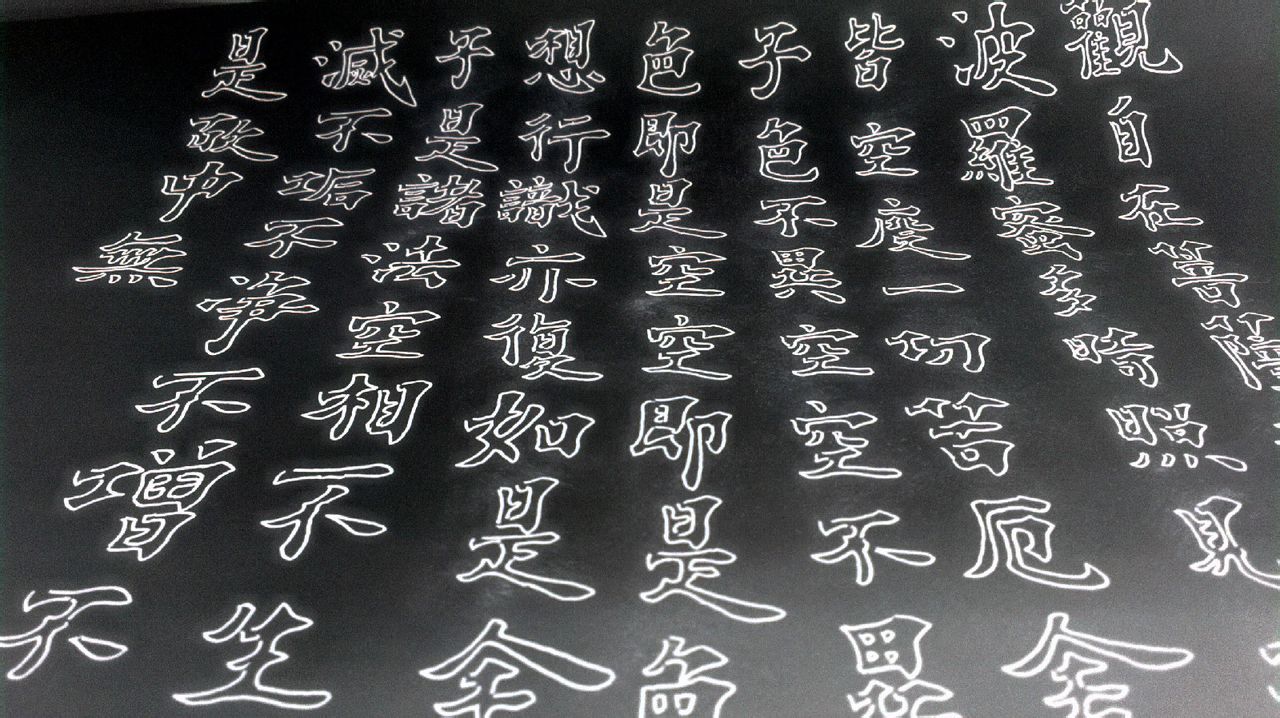 觀自在菩薩
波羅蜜多時照見
皆空度一切苦厄舍
子色不異空空不異
色即是空空即是色
想行識亦復如是舍
子是諸法空相不生
滅不垢不淨不增不
是故中無